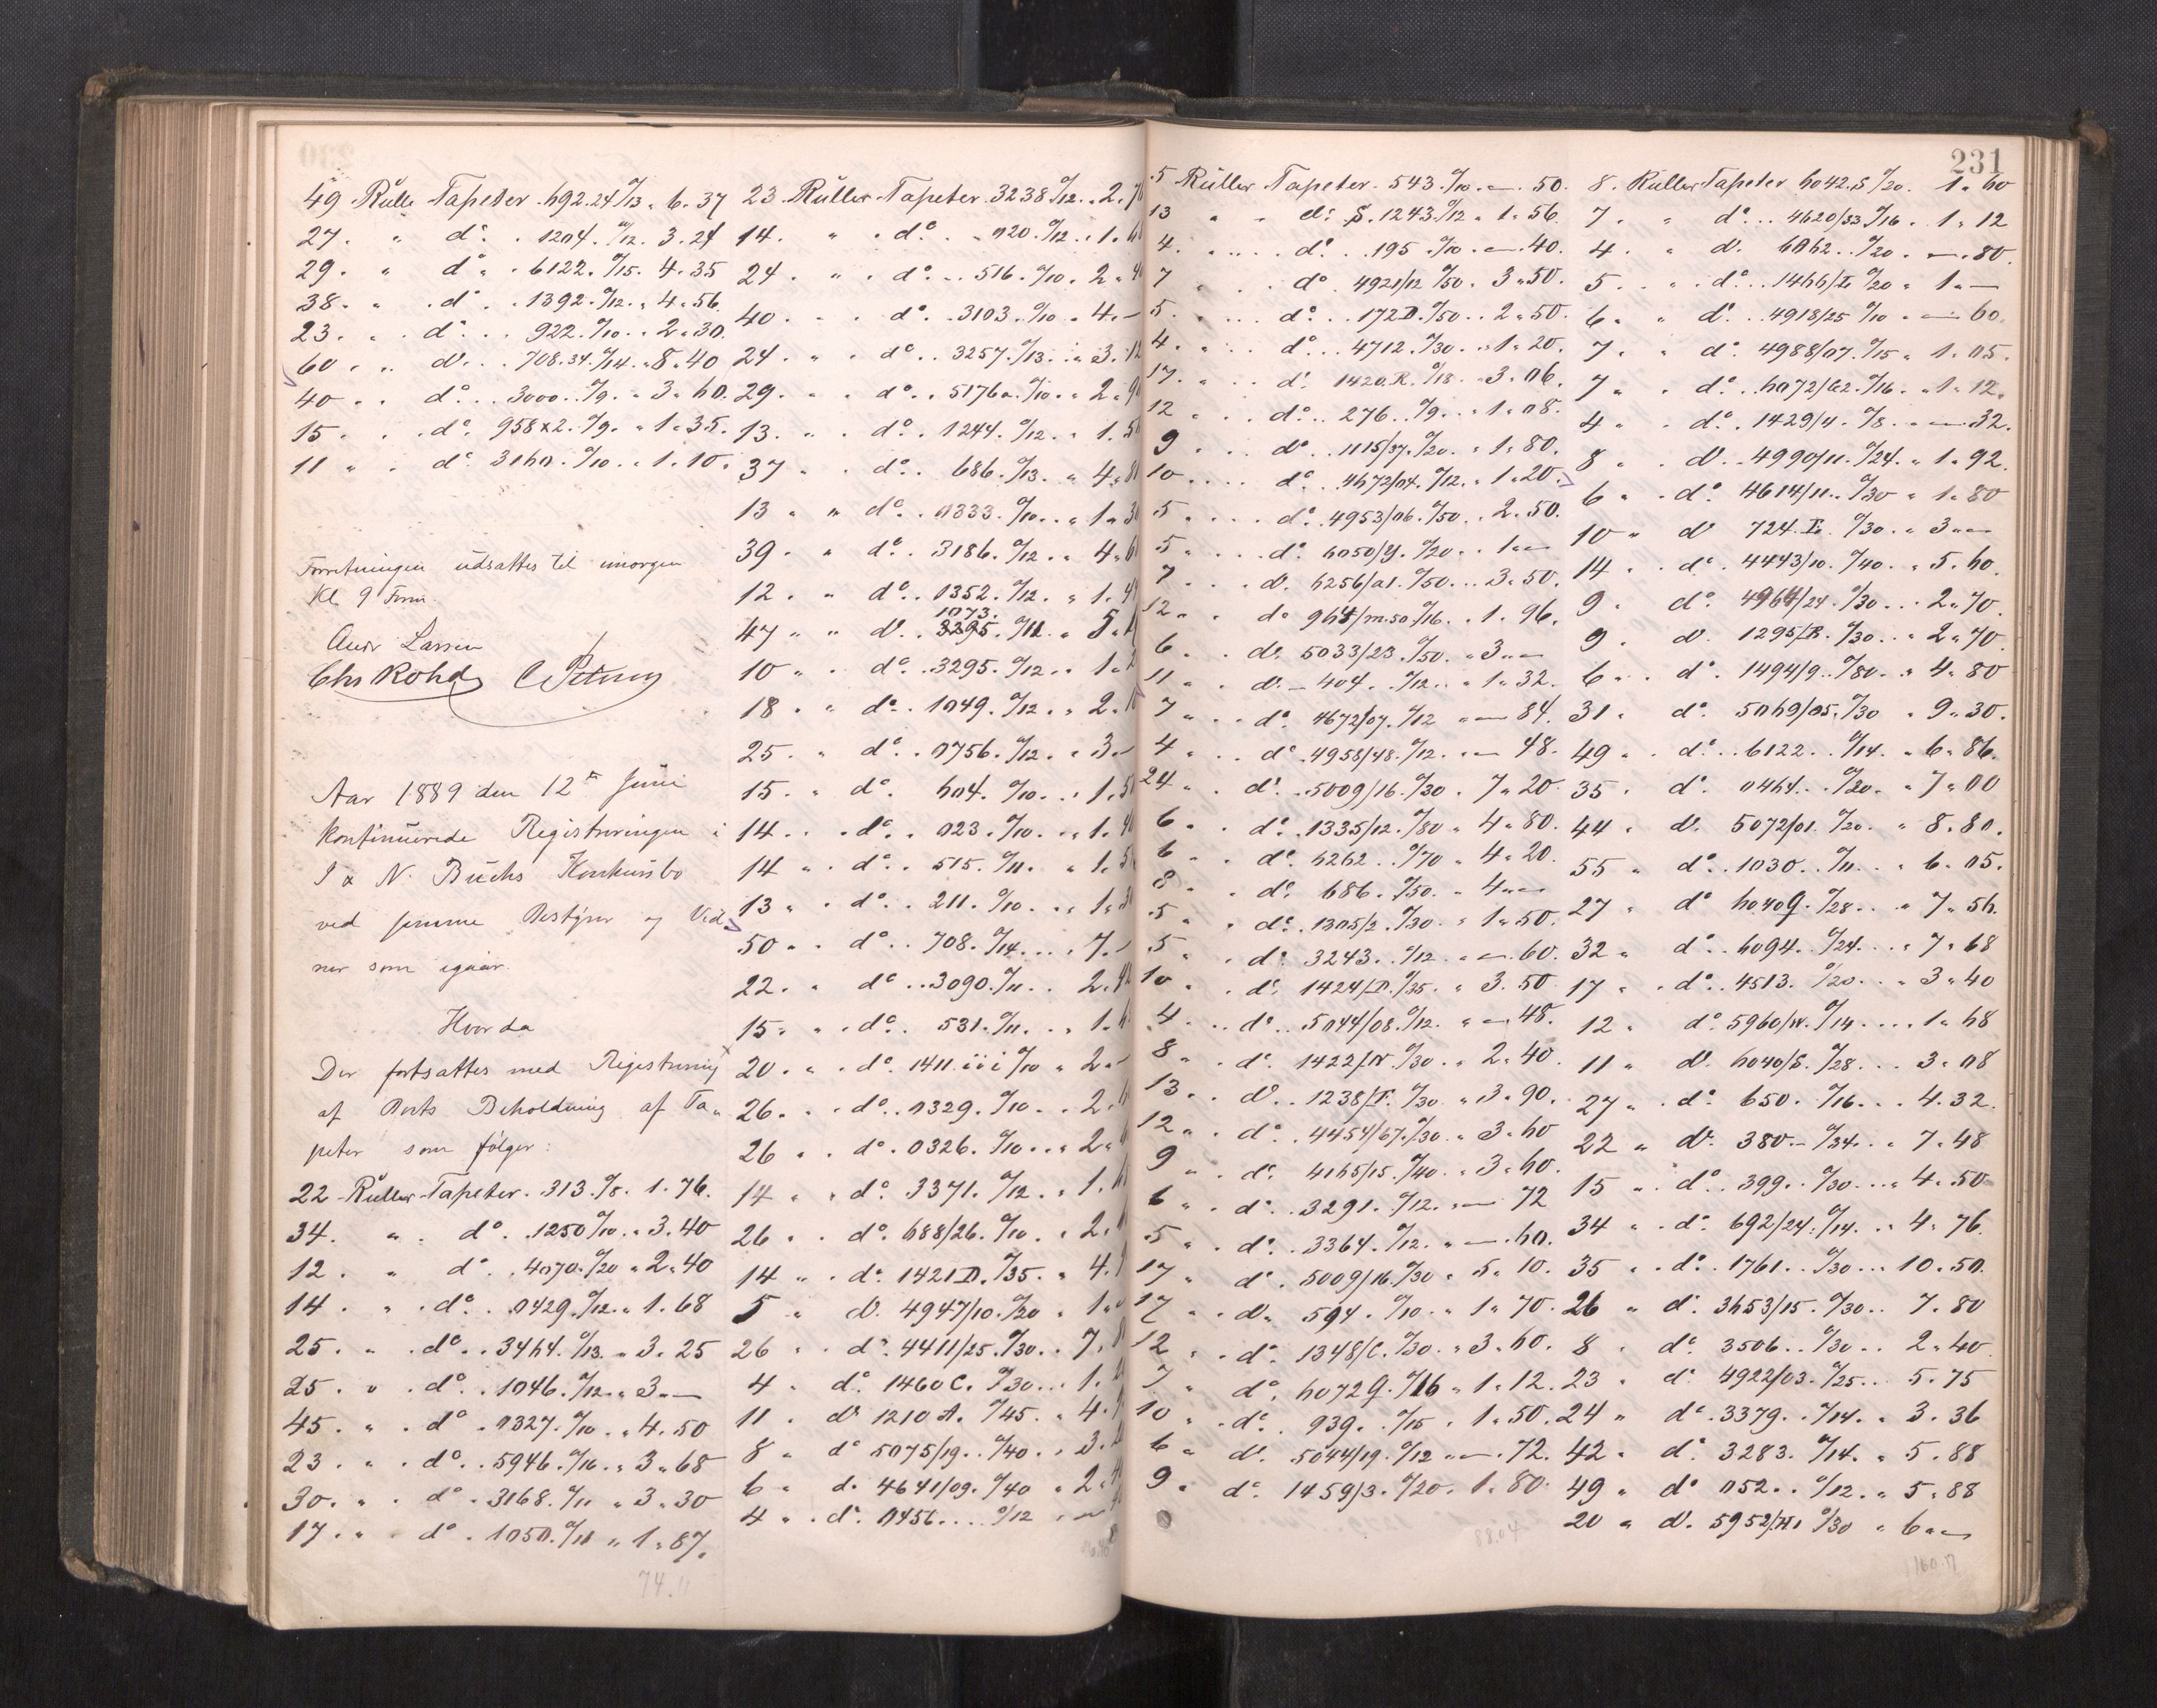 49 Rulle Tapeter 692.24 a/13 " 6.37
27. " do. 1204. a/12. 3.24
29. " do. 6122. a/15. 4.35
38. " do. 1392. a/12. " 4.56
23. " do. 922. a/10. 2.30.
60 " do. 708.34. a/14. 8.40
40 " do. 3000. a/9. 3.60.
15. " do. 958x2. a/9. " 1.35.
11 " do. 3160. a/10. 1.10.
Forretningen udsattes til imorgen
Kl. 9 Form.
Andr Larsen
Chs Rohde
Aar 1889 den 12te Juni
kontinuerede Registreringen i
I & N. Buchs Konkursbo
ved samme Bestyrer og Vid„
ner som igaar.
Hvor da
Der fortsattes med Registrering
af Boets Beholdning af Ta„
peter som følger:
22 Ruller Tapeter. 313. a/8. 1.76.
34. " do. 1250 a/10. 3.40
12. " do. 4070. a/20 " 2.40
14. " do. 0429. a/12. " 1.68
25. " do. 3464. a/13. " 3.25
25. " do. 1046. a/12. " 3.—
45. " do. 0327. a/10. " 4.50
23. " do. 5946. a/16. " 3.68
30. " do. 3168. a/11 " 3.30
17. " do. 1050. a/11 " 1.87.
74.11
23. Ruller Tapeter. 3238 a/12. 2.7
14. " do. 020. a/12. 1.6
24. " do. 516. a/10. 2.4
40. " do. 3103. a/10. 4.—
24. " do. 3257. a/13. " 3.12
29. " do. 5176a. a/10. 2.9
13. " do. 1244. a/12. " 1.5
37 " do. 686. a/13. " 4.8
13 " do. 0333. a/10. " 1.3
39. " do. 3186. a/12. " 4.6
12. " do. 1352. a/12. " 1.4
1073.
47 " do. 3295. a/11. " 5.
10 " do. 3295. a/12. " 1.2
18 " do. 1049. a/12. " 2.1
25. " do. 0756. a/12. " 3.—
15. " do. 604. a/10. 1.5
14. " do. 023. a/10. " 1.40
14 " do. 515. a/11. " 1.5
13 " do. 211. a/10. " 1.3
50 " do. 708. a/14. 7.—
22. " do. 3090. a/11. 2.4
15. " do. 531. a/11. " 1.6
20. " do. 1411.iii a/10 " 2.—
26. " do. 0329. a/10. 2.6
26 " do. 0326. a/10. " 2.
14 " do. 3371. a/12. " 1.6
26 " do. 688/26. a/10. 2.
14 " do. 1421 D. a/35. " 4.9
5 " do. 4947/10. a/20 " 1.
26 " do. 4411/25. a/30. 7.8
4 " do. 1460 C. a/30. 1.2
11. do 1210 A. a/45. " 4.9
8 " do 5075/19. a/40. 3.2
6 " do. 4641/09. a/40 " 2.4
4 " do. 0456. a/12
231
5 Ruller Tapeter. 543. a/10. — 50.
13 " do. S. 1243. a/12 " 1.56.
4. " do. 195. a/10. — 40.
7 " do. 4921/12 a/50. 3.50.
5. " do. 172 D. a/50. 2.50.
4. " do. 4712. a/30. 1.20.
17. " do. 1420 R. a/18. 3.06.
12 " do. 276. a/9. 1.08.
9 " do. 1115/37. a/20. 1.80.
10 " do. 4672/04. a/12. " 1.20.
5 " do. 4953/06. a/50. 2.50.
5 " do. 6050/y. a/20. 1.—
7 " do. 6256/a1. a/50. 3.50.
12 " do 964/m.50 a/16. 1.96.
6 " do. 5033/23. a/50. " 3.—
11 " do. 404. a/12. 1.32.
7 " do. 4672/07. a/12 " — 84.
4 " do 4958/48. a/12. — 48.
24 " do. 5009/16. a/30. 7.20.
6 " do. 1335/12. a/80. 4.80.
6 " do. 6262. a/70 " 4.20.
8 " do. 686. a/50. " 4.—
5 " do. 1305/2. a/30. 1.50.
5 " do. 3243. a/12. — 60.
10 " do. 1424/D. a/35. 3.50
4 " do. 5044/08. a/12. " — 48.
8 " do. 1422/N. a/30. 2.40.
13 " do. 1238/F. a/30. 3.90.
12 " do. 4454/67. a/30. 3.60
9 " do. 4165/15. a/40. 3.60.
6 " do. 3291. a/12. — 72
5 " do. 3364. a/12. — 60.
17 " do. 5009/16. a/30. 5.10.
17 " do. 594. a/10. " 1.70.
12 " do. 1348/C. a/30. " 3.60.
7 " do. 6072 Q. a/16 " 1.12.
10 " do. 939. a/15. 1.50.
6 " do. 5044/19. a/12 — 72.
9 " do. 1459/3. a/20. 1.80.
88.04
8. Ruller Tapeter 6042.S a/20. 1.60
7. " do. 4620/33 a/16. 1.12
4. " do. 6062. a/20. — 80.
5. " do. 1466/I. a/20 " 1.—
6 " do. 4918/25 a/10 — 60.
7. " do. 4988/07. a/15 " 1.05.
7 " do. 6072/62. a/16. 1.12.
4 " do. 1429/4. a/8. — 32.
8 " do. 4990/11. a/24. " 1.92.
6 " do. 4614/11. a/30 " 1.80
10 " do 724. E. a/30. " 3.—
14 " do. 4443/10. a/40. 5.60.
9 " do. 4964/24. a/30. 2.70.
9 " do. 1295/B. a/30. " 2.70.
6 " do. 1494/9. a/80. " 4.80
31 " do. 5069/05. a/30 " 9.30.
49 " do. 6122. a/14. " 6.86.
35 " do. 0464. a/20. " 7.00
44 " do. 5072/01. a/20. " 8.80.
55 " do. 1030. a/11. " 6.05.
27 " do 6040 Q. a/28. " 7.56.
32 " do. 6094. a/24. " 7.68
17 " do. 4513. a/20. 3.40
12 " do. 5960/W. a/14. 1.68
11 " do. 6040/S. a/28. 3.08
27 " do. 650. a/16. 4.32.
22 " do. 380. a/34. 7.48
15 " do. 399. a/30. 4.50
34 " do. 692/24. a/14. 4.76.
35 " do. 1761. a/30. 10.50.
26 " do. 3653/15. a/30. 7.80
8 " do. 3506. a/30. 2.40.
23 " do. 4922/03. a/25. 5.75
24 " do. 3379. a/14. " 3.36
42 " do. 3283. a/14. " 5.88
49 " do 052. a/12. " 5.88
20 " do. 5952/H. a/30 " 6.—